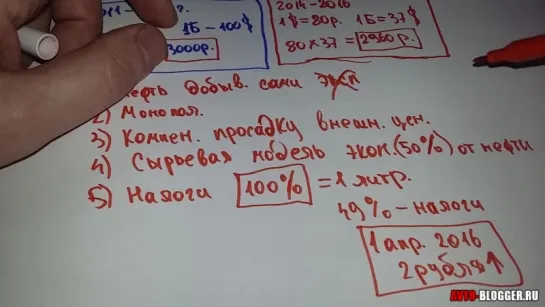 1Б - 100$
3000р.
2014-2016
1$ = 80р. 1Б = 37$
80 x 37 = 2960р.
добыв. сами
2) Монопол.
3) Компен. просадку внешн. цен.
4) Сырьевая модель экон. (50%) от нефти
5) Налоги 100% = 1 литр.
49% - налоги
1 апр. 2016
2 рубля ↑
AVTO-BLOGGER.RU